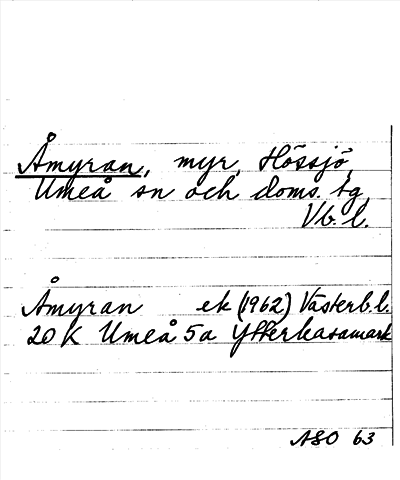 Åmyran, myr, Hössjö,
Umeå sn och doms. tg,
Vb. l.
Åmyran ek (1962) Västerb. l.
20 K Umeå 5a Ytterkasamark
ASO 63